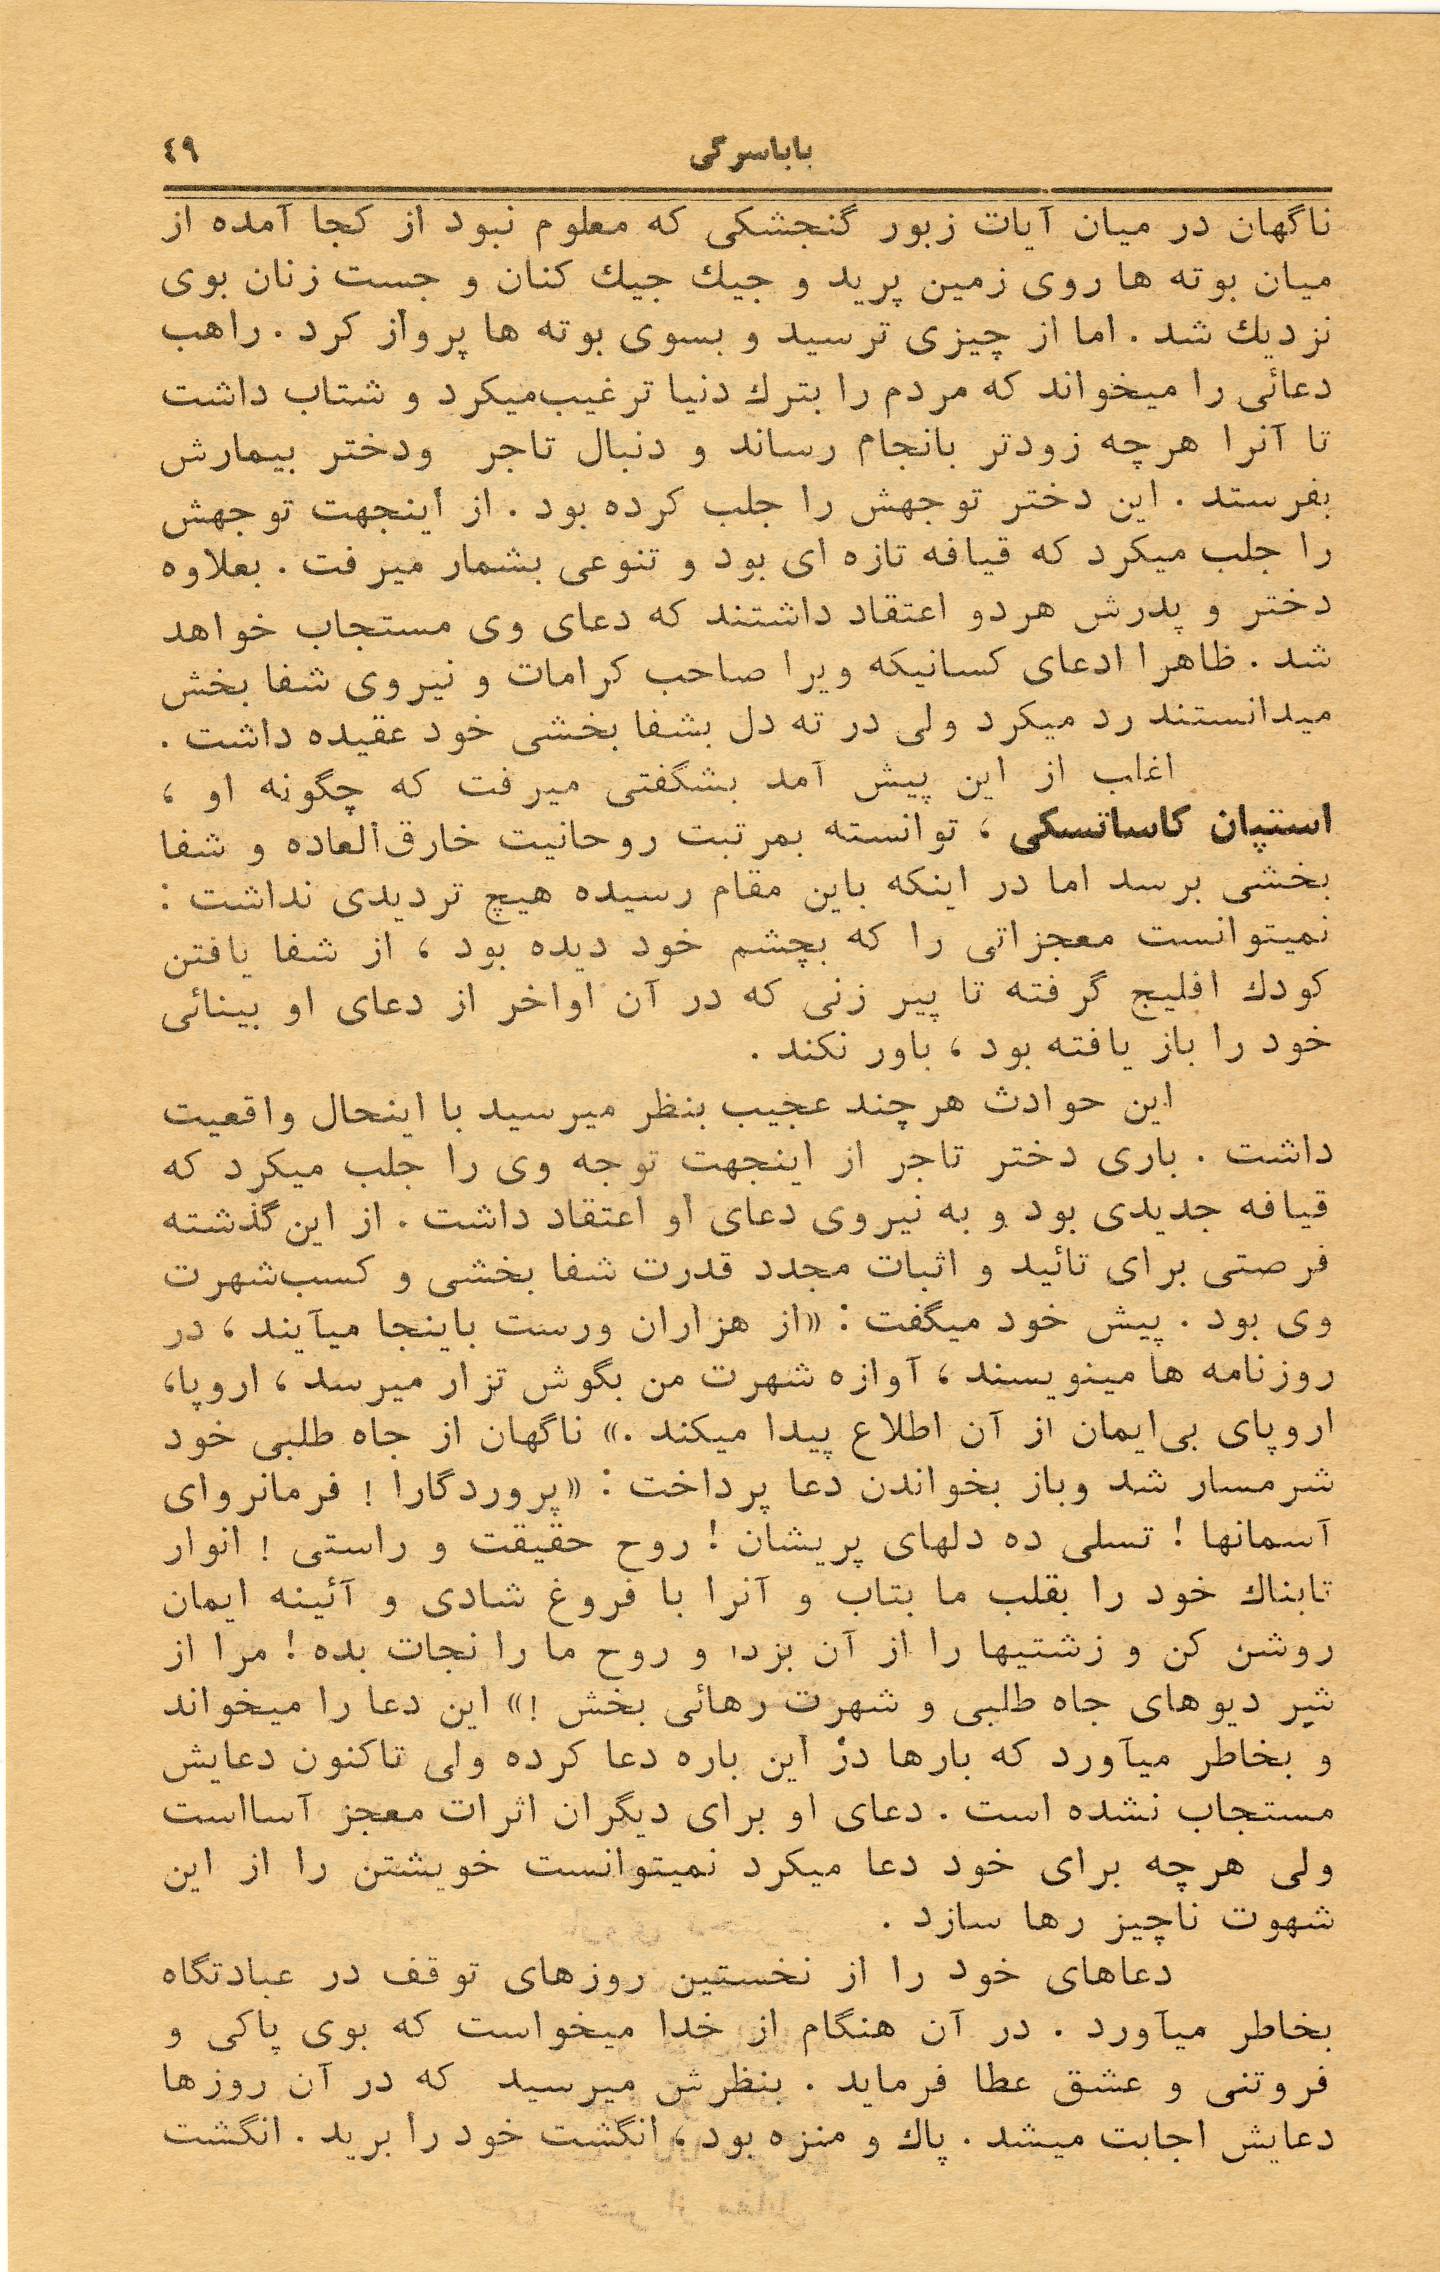 باباسرگی
٤٩
ناگهان در میان آیات زبور گنجشکی که معلوم نبود از کجا آمده از
میان بوته ها روی زمین پرید و جیك جیك کنان و جست زنان بوی
نزدیك شد . اما از چیزی ترسید و بسوی بوته ها پرواز کرد . راهب
دعائی را میخواند که مردم را بترك دنیا ترغیب‌میکرد و شتاب داشت
تا آنرا هرچه زودتر بانجام رساند و دنبال تاجر ودختر بیمارش
بفرستد . این دختر توجهش را جلب کرده بود . از اینجهت توجهش
را جلب میکرد که قیافه تازه ای بود و تنوعی بشمار میرفت . بعلاوه
دختر و پدرش هردو اعتقاد داشتند که دعای وی مستجاب خواهد
شد . ظاهرا ادعای کسانیکه ویرا صاحب کرامات و نیروی شفا بخش
میدانستند رد میکرد ولی در ته دل بشفا بخشی خود عقیده داشت .
اغلب از این پیش آمد بشگفتی میرفت که چگونه او ،
استپان کاساتسکی ، توانسته بمرتبت روحانیت خارق‌العاده و شفا
بخشی برسد اما در اینکه باین مقام رسیده هیچ تردیدی نداشت :
نمیتوانست معجزاتی را که بچشم خود دیده بود ، از شفا یافتن
کودك افلیج گرفته تا پیر زنی که در آن اواخر از دعای او بینائی
خود را باز یافته بود ، باور نکند .
این حوادث هرچند عجیب بنظر میرسید با اینحال واقعیت
داشت . باری دختر تاجر از اینجهت توجه وی را جلب میکرد که
قیافه جدیدی بود و به نیروی دعای او اعتقاد داشت . از این گذشته
فرصتی برای تائید و اثبات مجدد قدرت شفا بخشی و کسب‌شهرت
وی بود . پیش خود میگفت : «از هزاران ورست باینجا میآیند ، در
روزنامه ها مینویسند ، آوازه شهرت من بگوش تزار میرسد ، اروپا،
اروپای بی‌ایمان از آن اطلاع پیدا میکند .» ناگهان از جاه طلبی خود
شرمسار شد وباز بخواندن دعا پرداخت : «پروردگارا ! فرمانروای
آسمانها ! تسلی ده دلهای پریشان ! روح حقیقت و راستی ! انوار
تابناك خود را بقلب ما بتاب و آنرا با فروغ شادی و آئینه ایمان
روشن کن و زشتیها را از آن بزدا و روح ما را نجات بده ! مرا از
شر دیوهای جاه طلبی و شهرت رهائی بخش !» این دعا را میخواند
و بخاطر میآورد که بارها در این باره دعا کرده ولی تاکنون دعایش
مستجاب نشده است . دعای او برای دیگران اثرات معجز آسااست
ولی هرچه برای خود دعا میکرد نمیتوانست خویشتن را از این
شهوت ناچیز رها سازد .
دعاهای خود را از نخستین روزهای توقف در عبادتگاه
بخاطر میآورد . در آن هنگام از خدا میخواست که بوی پاکی و
فروتنی و عشق عطا فرماید . بنظرش میرسید که در آن روزها
دعایش اجابت میشد . پاك و منزه بود ، انگشت خود را برید . انگشت